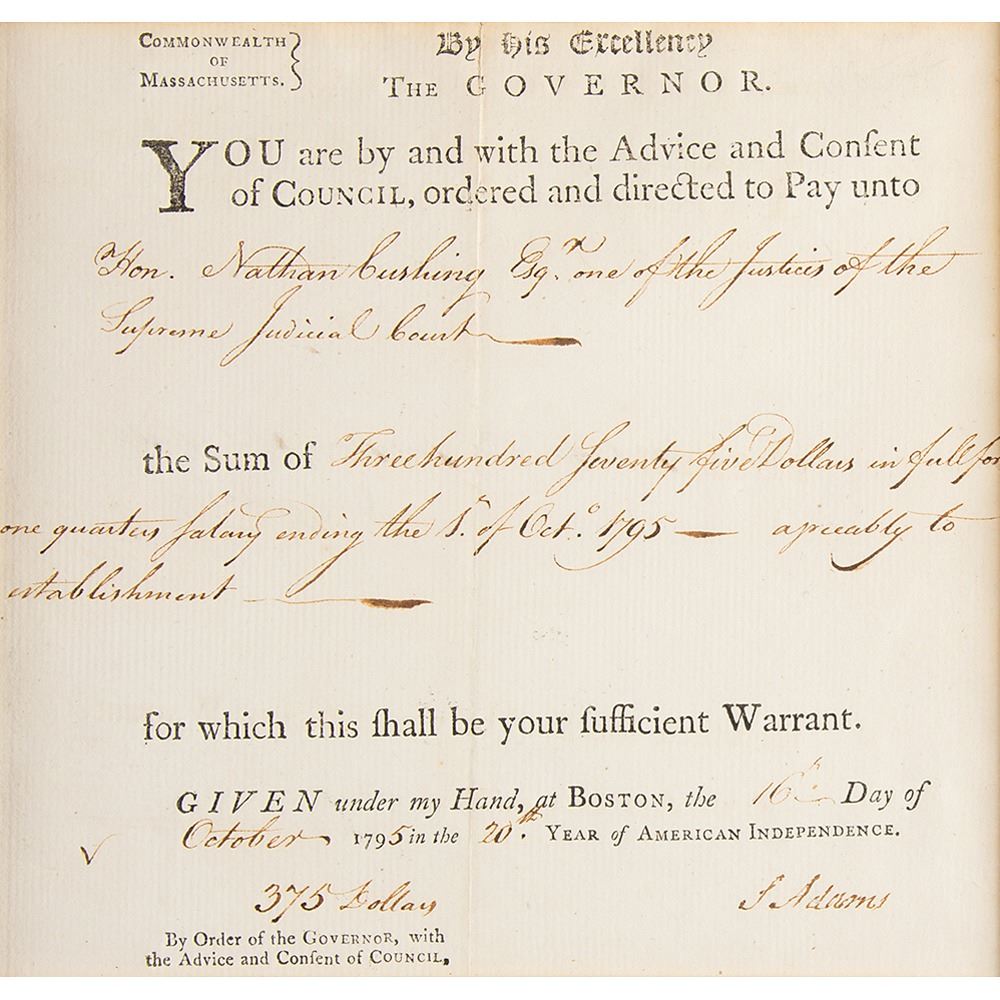 COMMONWEALTH
OF
MASSACHUSETTS.
By His Excellency
THE GOVERNOR.
YOU are by and with the Advice and Conſent
of COUNCIL, ordered and directed to Pay unto
Hon. Nathan Cushing Esqr. one of the Justices of the
Supreme Judicial Court
the Sum of Three hundred Seventy five Dollars in full for
one quarters Salary ending the 1st. of Octo. 1795 — agreeably to
establishment —
for which this ſhall be your ſufficient Warrant.
GIVEN under my Hand, at BOSTON, the 16th. Day of
October 1795 in the 20th. YEAR of AMERICAN INDEPENDENCE.
375 Dollars
S Adams
By Order of the GOVERNOR, with
the Advice and Conſent of COUNCIL,